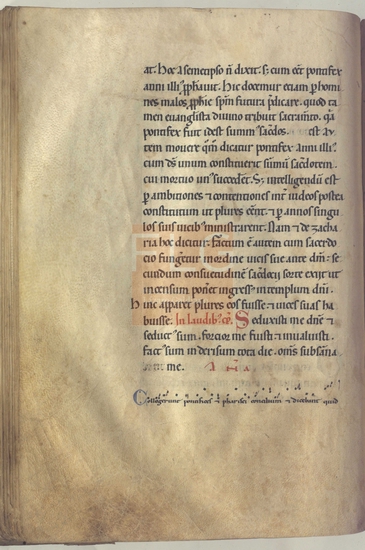 at. hoc a semetipso n̄ dixit. s; cum eēt pontifex
anni illi ꝓphauit. hic docemur etiam ꝑ homi
nes malos ꝓphīe sp̄m futura p̄dicare. quod ta
men euangl̄ista diuino tribuit sacram̄to. q̄a
pontifex fuit idest summ sac̄dos. est au
tem mouere q̄m dicatur pontifex anni illi.
cum d̄s unum constituerit sūmū sac̄dotem.
cui mortuo un succederet. S; intelligendū est
ꝑ ambitiones ⁊ contentiones int̄ iudeos postea
constitutum ut plures eēnt. ⁊ ꝑ annos singu
los suis uicib ministrarent. Nam ⁊ de zacha
ria hoc dicitur. factum ē autem cum sacerdo
cio fungetur in ordine uicis sue ante dm̄. se
cundum consuetudinē sac̄docii sorte exiit ut
incensum poneret ingress in templum dn̄i.
hinc apparet plures eos fuisse. ⁊ uices suas ha
buisse. In laudib; Seduxisti me dn̄e ⁊
seduct sum. fortior me fuisti ⁊ inualuisti.
fact sum in derisum tota die. om̄s subsāna
me.
Collegerunt pontifices ⁊ pharisei concilium ⁊ dicebant quid